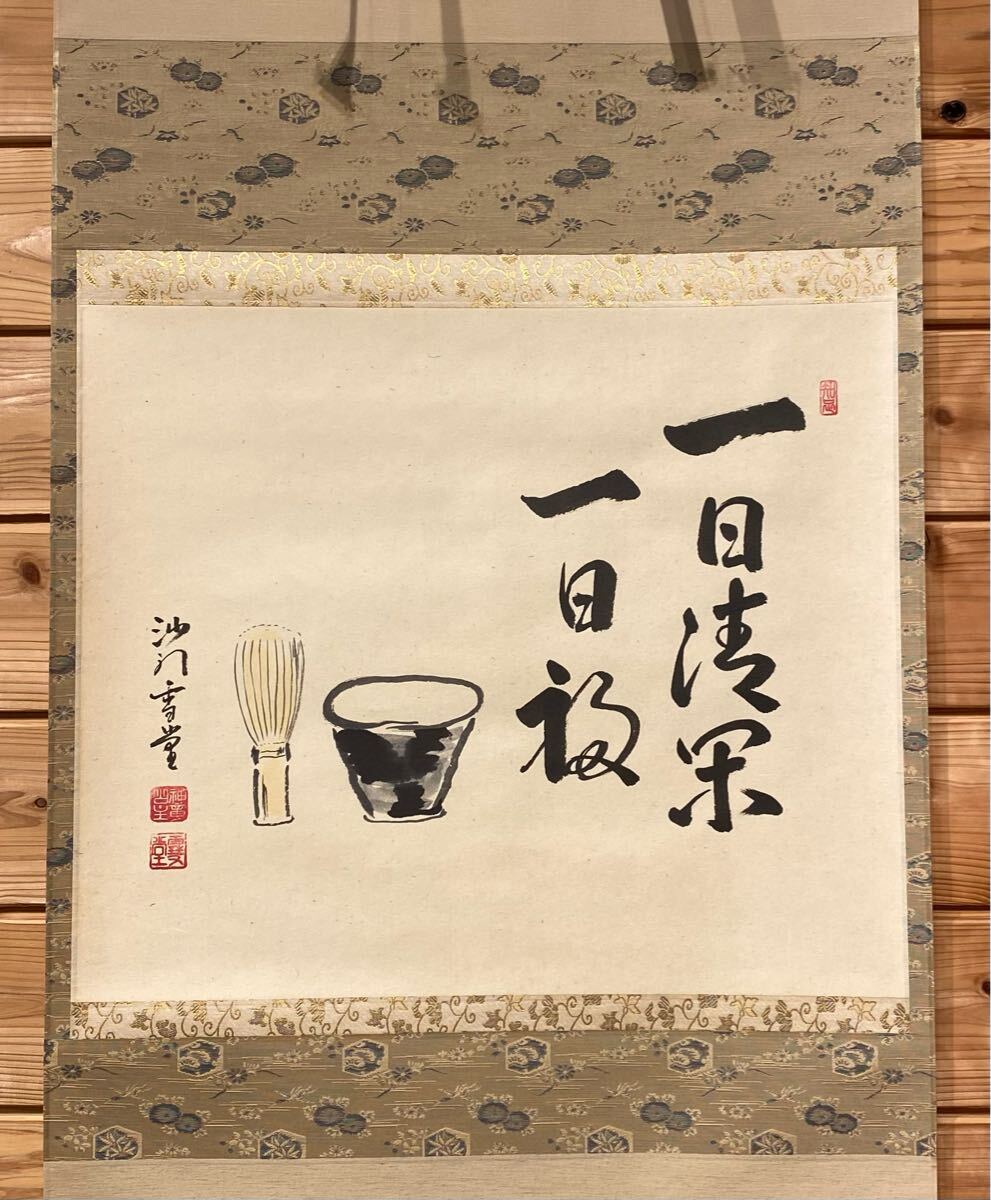 一日清閑
一日福
沙門雪堂